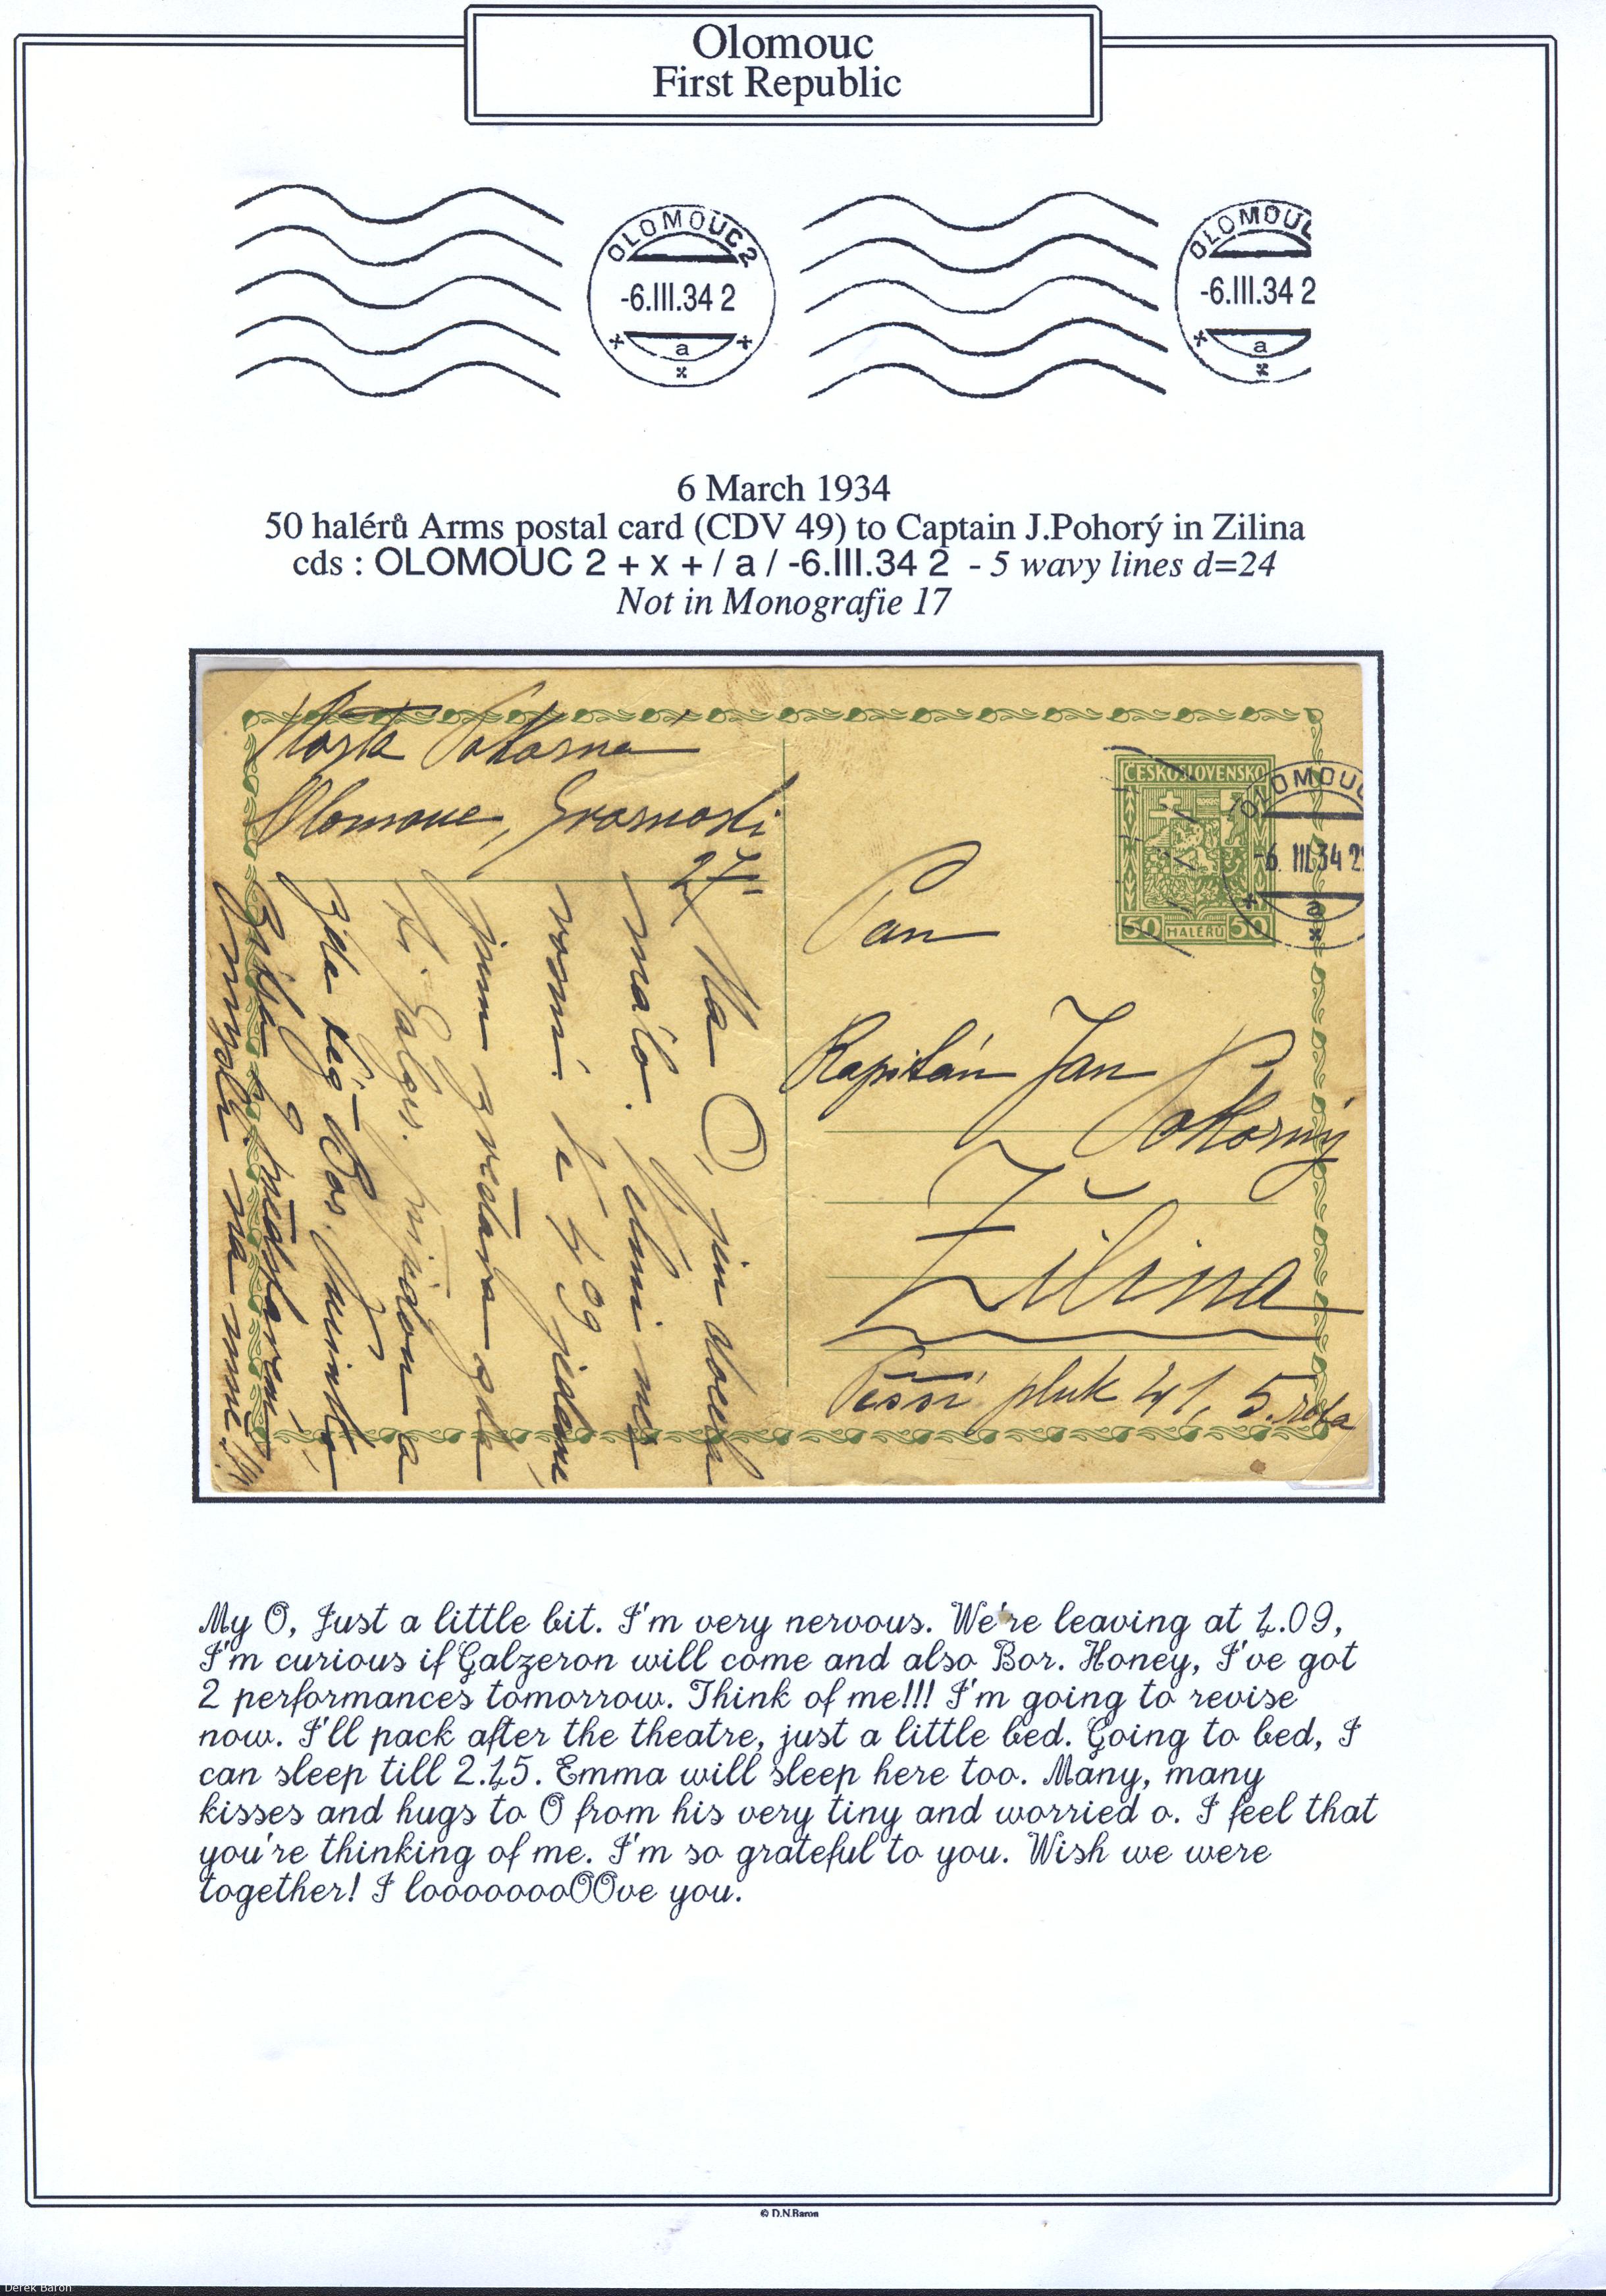 Olomouc
First Republic
OLOMOUC 2
-6.III.34 2
a
OLOMOUC
-6.III.34 2
a
6 March 1934
50 halérů Arms postal card (CDV 49) to Captain J.Pohorý in Zilina
cds : OLOMOUC 2 + x + / a / -6.III.34 2 - 5 wavy lines d=24
Not in Monografie 17
Vlasta Pokorná
Olomouc,
27
málo. Velmi
1/4 09 jedeme
jsem zvědava
přijdou a
Bor.
na mne!!!
ČESKOSLOVENSKO
50 HALÉŘŮ 50
OLOMOUC
-6.III.34 2
a
Pan
Kapitán Jan
Pokorný
Žilina
Pěší pluk 41, 5. rota
My O, Just a little bit. I'm very nervous. We're leaving at 1.09,
I'm curious if Galzeron will come and also Bor. Honey, I've got
2 performances tomorrow. Think of me!!! I'm going to revise
now. I'll pack after the theatre, just a little bed. Going to bed, I
can sleep till 2.15. Emma will sleep here too. Many, many
kisses and hugs to O from his very tiny and worried o. I feel that
you're thinking of me. I'm so grateful to you. Wish we were
together! I looooooooOOve you.
© D.N.Baron
Derek Baron